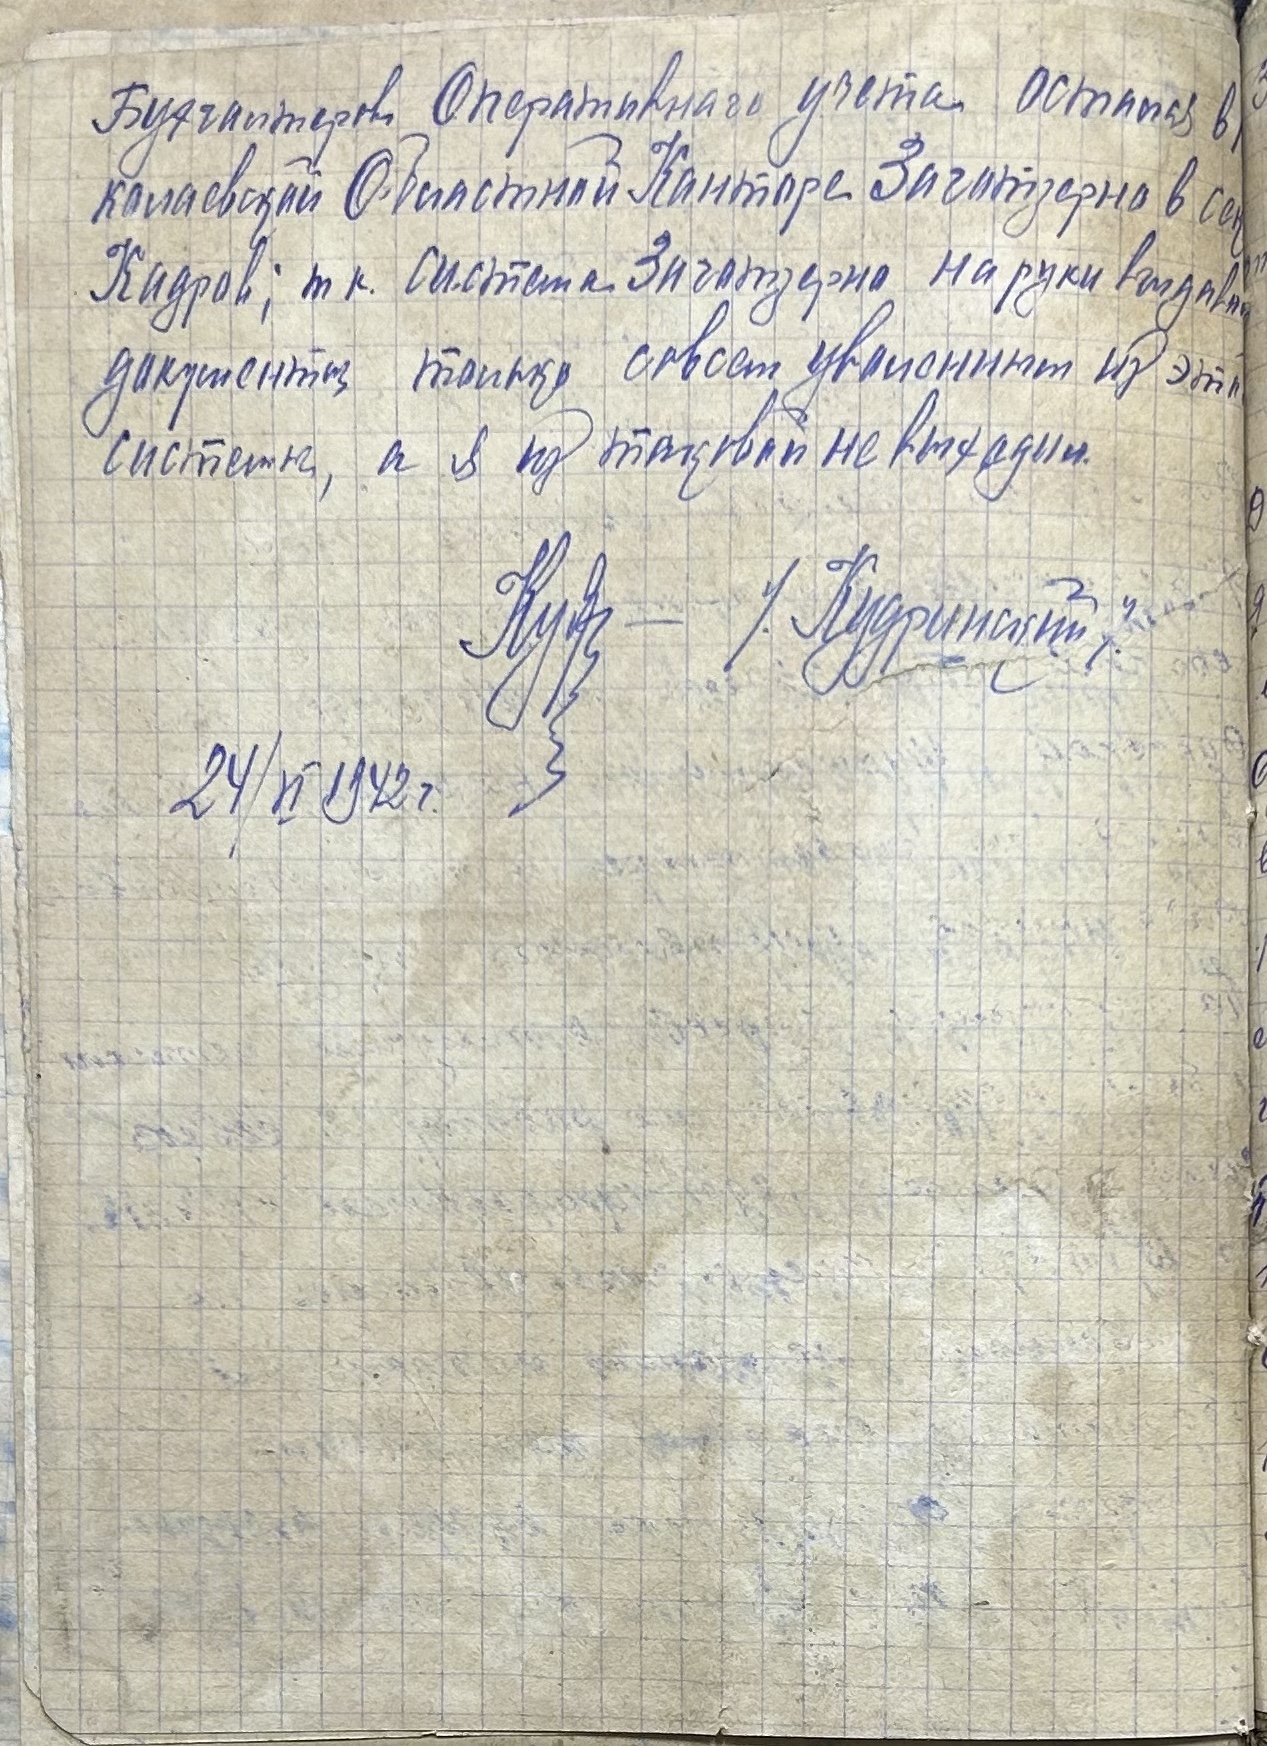 Бухгалтеров Оперативнаго учета остался в
колаевской Областной Канторе Заготзерно в сек
Кадров; т к. система Заготзерно на руки выдават
документы только совсем уволеным из это
системы, а я из таковой не выходил.
Куд — /. Кудринский /.
24/VI 1942 г.